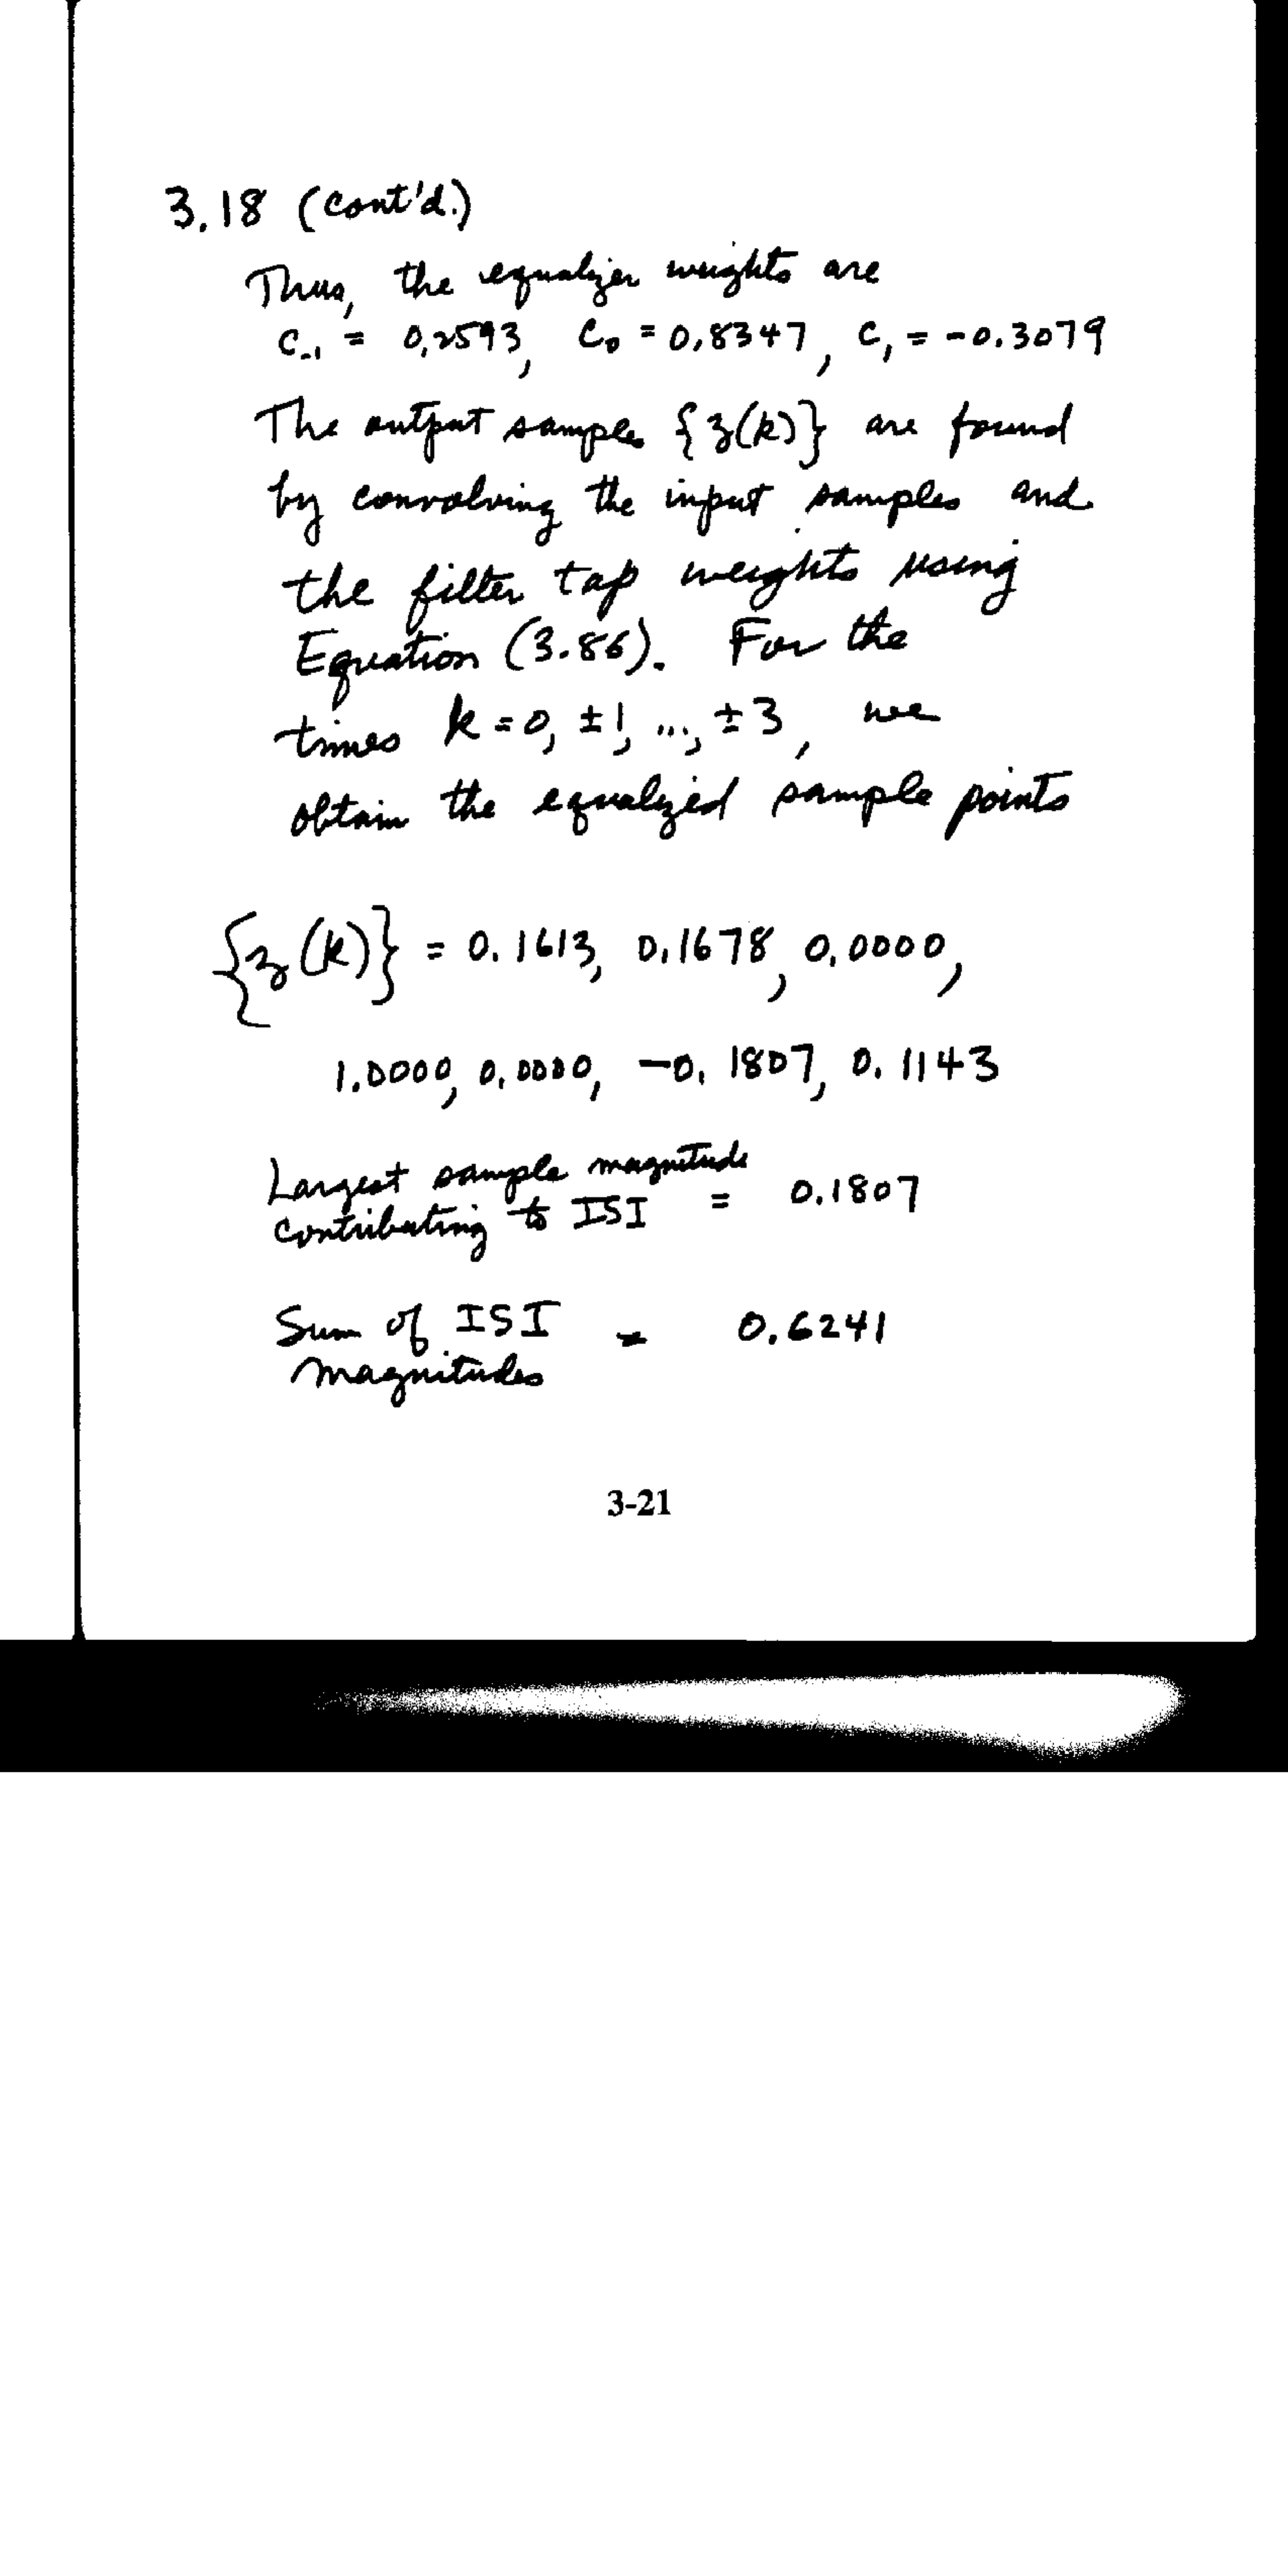 3.18 (cont'd.)
Thus, the equalizer weights are
C₋₁ = 0.2593, C₀ = 0.8347, C₁ = -0.3079
The output samples {z(k)} are found
by convolving the input samples and
the filter tap weights using
Equation (3.86). For the
times k = 0, ±1, ..., ±3, we
obtain the equalized sample points
{z(k)} = 0.1613, 0.1678, 0.0000,
1.0000, 0.0000, -0.1807, 0.1143
Largest sample magnitude
contributing to ISI = 0.1807
Sum of ISI = 0.6241
magnitudes
3-21